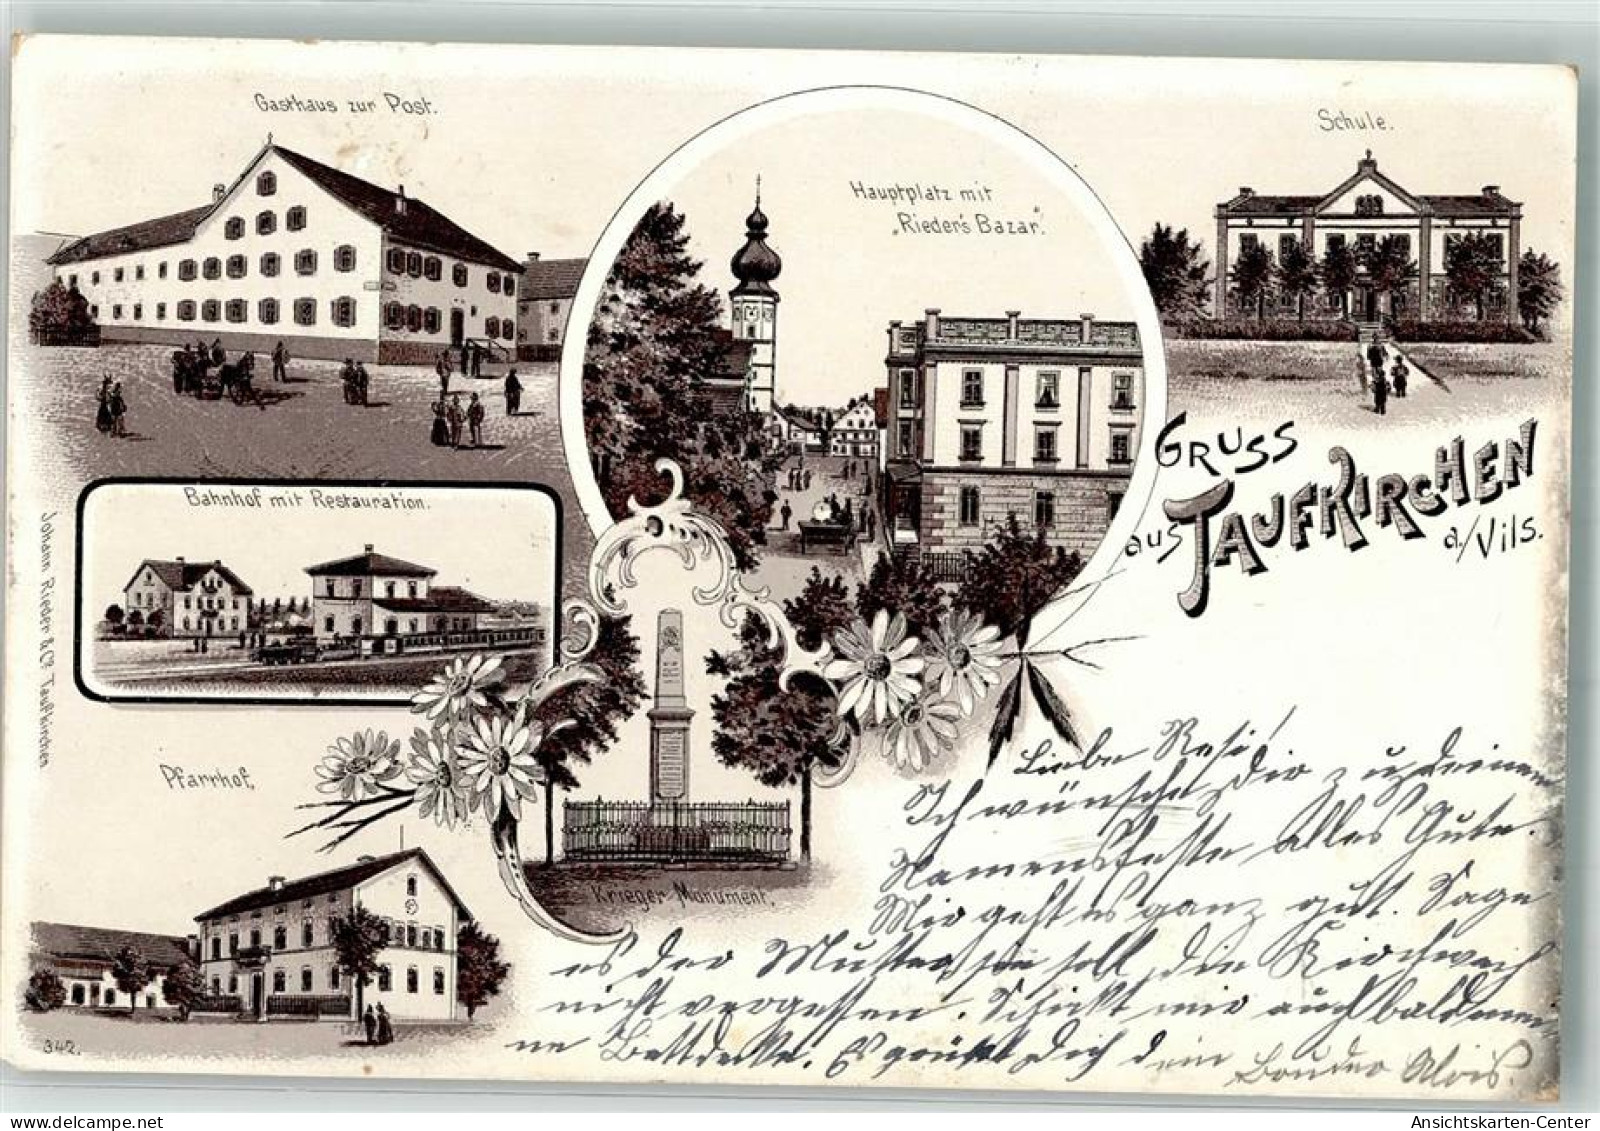 Gasthaus zur Post.
Hauptplatz mit
„Rieder's Bazar."
Schule.
Gruss
aus Taufkirchen
a./Vils.
Bahnhof mit Restauration.
Johann Rieder & Co. Taufkirchen
Pfarrhof.
Krieger-Monument.
342.
Liebe Resi!
Ich wünsche Dir zu deinem
Namensfeste alles Gute.
Mir geht es ganz gut. Sage
es der Mutter, sie soll die Kirchweih
nicht vergessen. Schickt mir auch bald mei-
ne Bettdecke. Es grüßt Dich dein Bruder Alois.
Ansichtskarten-Center